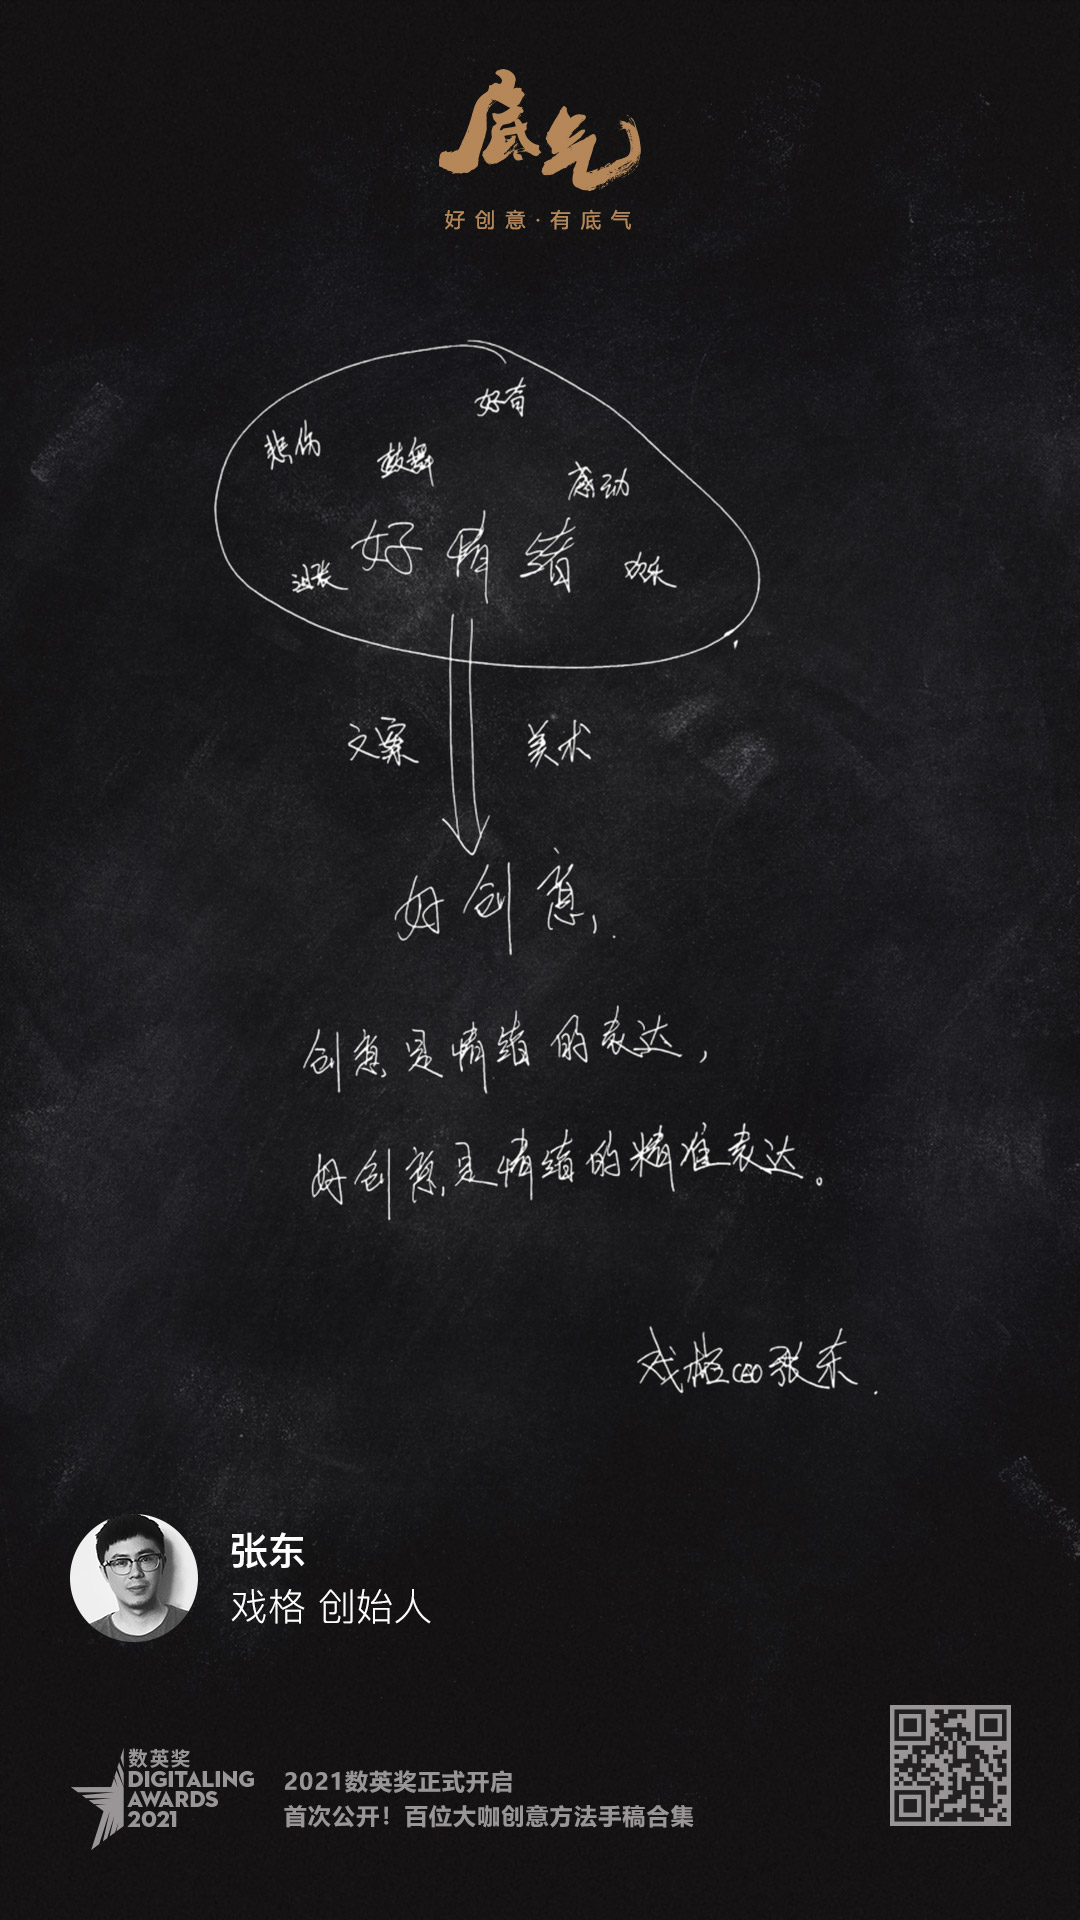 底气
好创意·有底气
好奇
悲伤
鼓舞
感动
好情绪
欢乐
文案
美术
好创意,
创意是情绪的表达,
好创意是情绪的精准表达。
戏格CEO张东.
张东
戏格 创始人
数英奖
DIGITALING
AWARDS
2021
2021数英奖正式开启
首次公开！百位大咖创意方法手稿合集